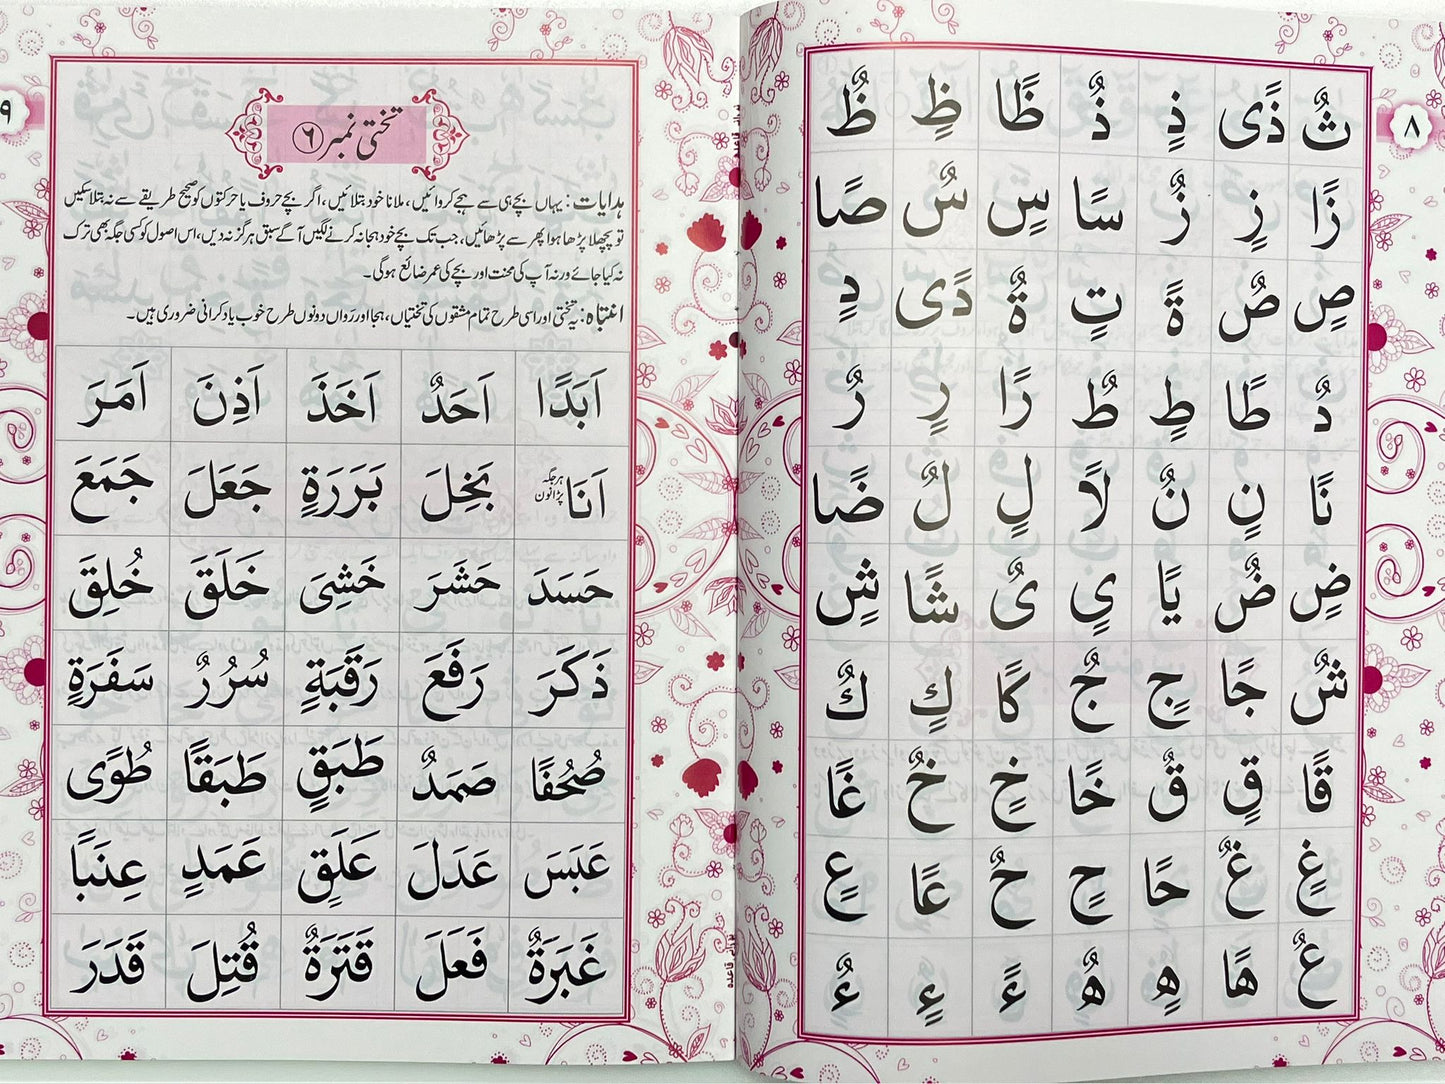 ٨
ثٌ ذًى ذٍ ذٌ ظًا ظٍ ظٌ
زًا زٍ زٌ سًا سٍ سٌ صًا
صٍ صٌ ةً تٍ ةٌ دًى دٍ
دٌ طًا طٍ طٌ رًا رٍ رٌ
نًا نٍ نٌ لًا لٍ لٌ ضًا
ضٍ ضٌ يًا ىٍ ىٌ شًا شٍ
شٌ جًا جٍ جٌ كًا كٍ كٌ
قًا قٍ قٌ خًا خٍ خٌ غًا
غٍ غٌ حًا حٍ حٌ عًا عٍ
عٌ هًا هٍ هٌ ءً ءٍ ءٌ
٩
تختی نمبر ۶
ہدایات: یہاں بچے ہی سے ہجے کروائیں، ملانا خود بتلائیں، اگر بچے حروف یا حرکتوں کو صحیح طریقے سے نہ بتلا سکیں
تو پچھلا پڑھا ہوا پھر سے پڑھائیں، جب تک بچے خود ہجا نہ کرنے لگیں آگے سبق ہرگز نہ دیں، اس اصول کو کسی جگہ بھی ترک
نہ کیا جائے ورنہ آپ کی محنت اور بچے کی عمر ضائع ہوگی۔
انتباہ: یہ تختی اور اسی طرح تمام مشقوں کی تختیاں، ہجا اور رواں دونوں طرح خوب یاد کرانی ضروری ہیں۔
اَبَدًا اَحَدٌ اَخَذَ اَذِنَ اَمَرَ
اَنَا ہر جگہ پڑا نون بَخِلَ بَرَرَةٍ جَعَلَ جَمَعَ
حَسَدَ حَشَرَ خَشِىَ خَلَقَ خُلِقَ
ذَكَرَ رَفَعَ رَقَبَةٍ سُرُرٌ سَفَرَةٍ
صُحُفًا صَمَدٌ طَبَقٍ طَبَقًا طُوًى
عَبَسَ عَدَلَ عَلَقٍ عَمَدٍ عِنَبًا
غَبَرَةٌ فَعَلَ قَتَرَةٌ قُتِلَ قَدَرَ